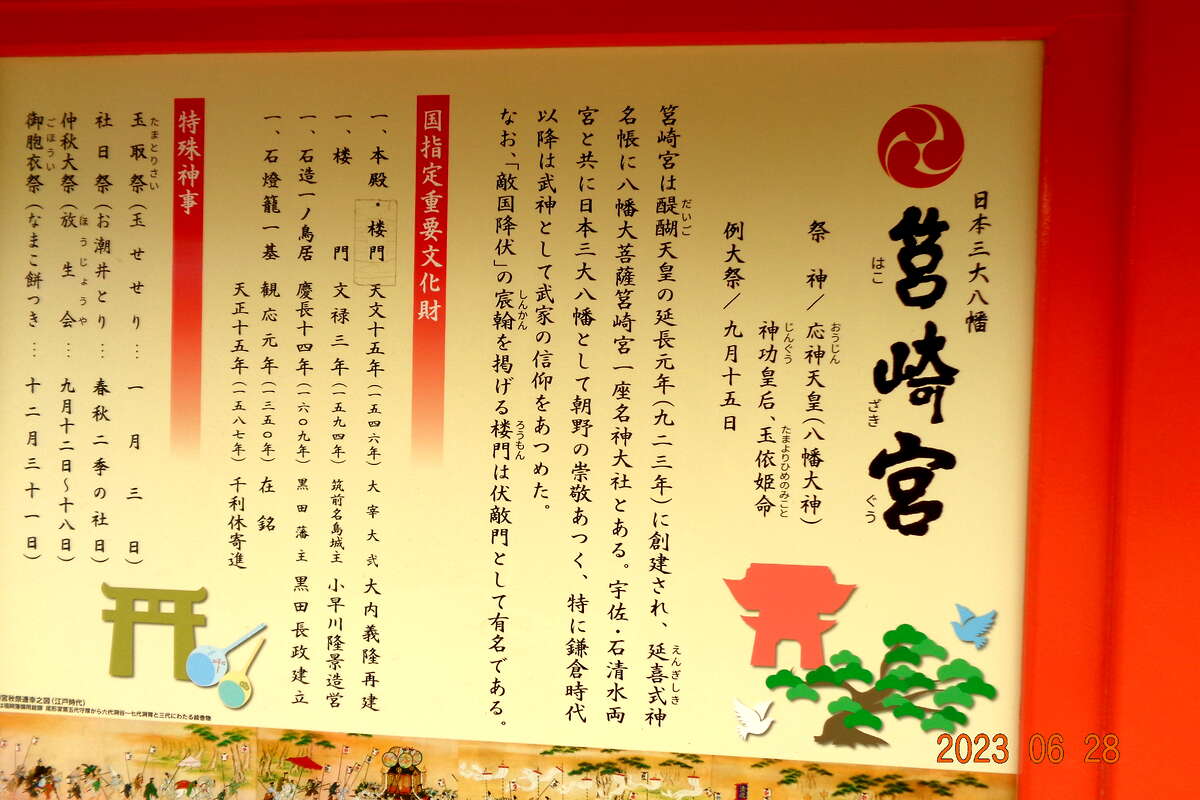 日本三大八幡
筥崎宮
はこ ざき ぐう
祭神／応神天皇（八幡大神）
おうじん
神功皇后、玉依姫命
じんぐう たまよりひめのみこと
例大祭／九月十五日
筥崎宮は醍醐天皇の延長元年（九二三年）に創建され、延喜式神
だいご えんぎしき
名帳に八幡大菩薩筥崎宮一座名神大社とある。宇佐・石清水両
宮と共に日本三大八幡として朝野の崇敬あつく、特に鎌倉時代
以降は武神として武家の信仰をあつめた。
なお、「敵国降伏」の宸翰を掲げる楼門は伏敵門として有名である。
しんかん ろうもん
国指定重要文化財
一、本殿・楼門 天文十五年（一五四六年）大宰大弐 大内義隆再建
一、楼門 文禄三年（一五九四年）筑前名島城主 小早川隆景造営
一、石造一ノ鳥居 慶長十四年（一六〇九年）黒田藩主 黒田長政建立
一、石燈籠一基 観応元年（一三五〇年）在銘
天正十五年（一五八七年）千利休寄進
特殊神事
玉取祭（玉せせり…一月三日）
たまとりさい
社日祭（お潮井とり…春秋二季の社日）
仲秋大祭（放生会…九月十二日～十八日）
ほうじょうや
御胞衣祭（なまこ餅つき…十二月三十一日）
ごほうい
2023 06 28